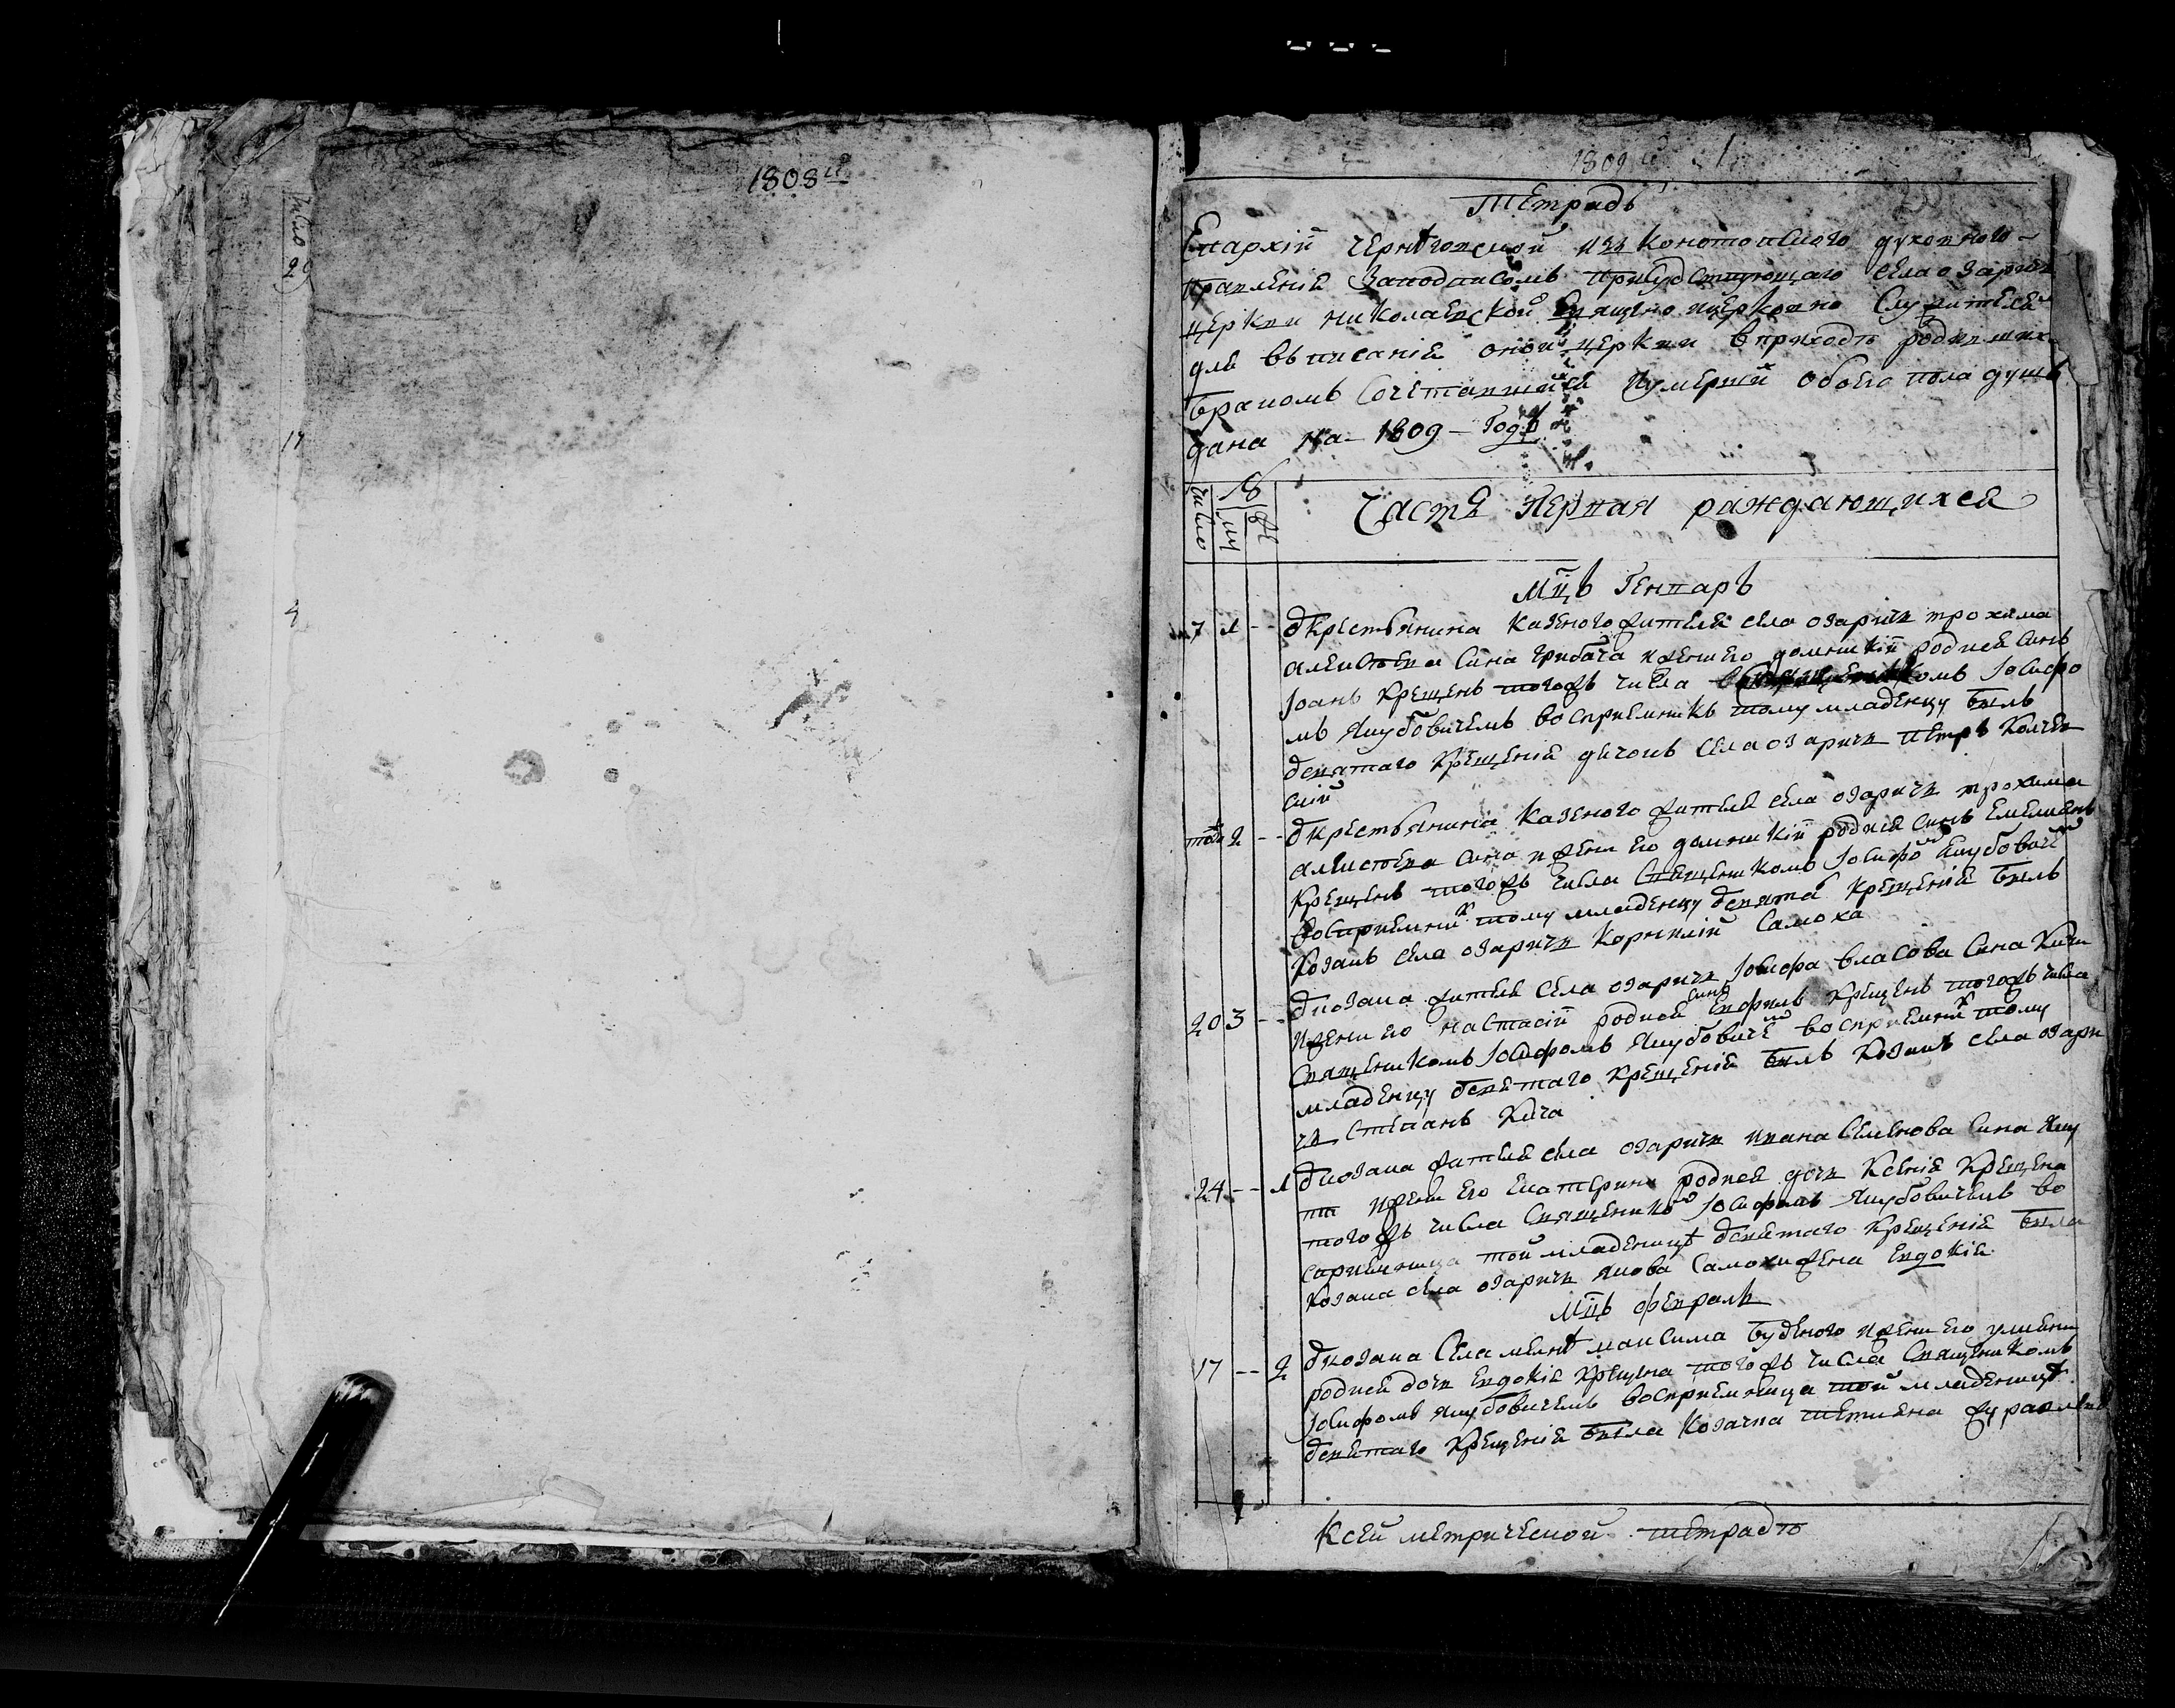 1808 го
Число
29
17
4
1809 го 1
Тетрадь
Епархіи Черниговской изъ Конотопского духовного
правленія заподписомъ присудствующаго села озаричъ
церкви николаевской священно церковно служителемъ
для вписанія оной церкви вприходѣ родившихъ
бракомъ сочетавшихся иумерших обоего пола душъ
дана на 1809 Годъ
Число
му
же
Часть Первая раждающихся
Мцъ Генварь
7 1 - - Ѿ крестьянина казеного жителя села озаричъ трохима
алексѣева сина грибача ижени его домникіи родися синъ
Іоанъ крещенъ тогожъ числа комъ Іосифо
мъ якубовичемъ восприемникъ тому младенцу билъ
ѿ святаго крещенія дячокъ села озаричъ петръ
скій
тож 2 - - Ѿ крестьянина казеного жителя села озаричъ трохима
алексѣева сина ижени его домникіи родися синъ Емелианъ
крещенъ тогожъ числа священикомъ Іосифомъ якубовичем
восприемник тому младенцу ѿ святаго крещенія билъ
козакъ села озаричъ Корнилій Самоха
20 3 - - Ѿ козака жителя села озаричъ Іосифа власова сина Кичи
ижени его настасіи родися синъ крещенъ тогожъ числа
священикомъ Іосифомъ якубовичем восприемник тому
младенцу ѿ святаго крещенія билъ козакъ села озари
чъ Степанъ Кича
24 - - 1 Ѿ козака жителя села озаричъ ивана Семенова сина Яку
ти ижени его Екатерини родися дочь Ксенія крещена
тогожъ числа священикомъ Іосифомъ якубовичемъ во
сприемница той младеницѣ ѿ святаго крещенія била
козака села озаричъ якова Самохи жена Евдокія
Мцъ февраль
17 - - 2 Ѿ козака села максима буденого ижени его
родися дочь Евдокія крещена тогожъ числа священикомъ
Іосифомъ якубовичемъ восприемница той младеницѣ
ѿ святаго крещенія била козачка тетиана
Ксей метрической тетрадѣ